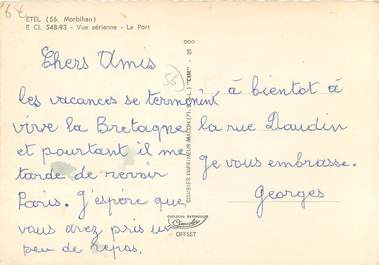 ETEL (56, Morbihan)
E Cl. 548-93 - Vue aérienne - Le Port
Chers Amis
les vacances se terminent
vive la Bretagne
et pourtant il me
tarde de revoir
Paris. J'espère que
vous avez pris un
peu de repos.
56
COMBIER IMPRIMEUR MACON (71, S.-&-L.) "CIM"
OFFSET
à bientôt à
la rue Daudin
je vous embrasse.
Georges